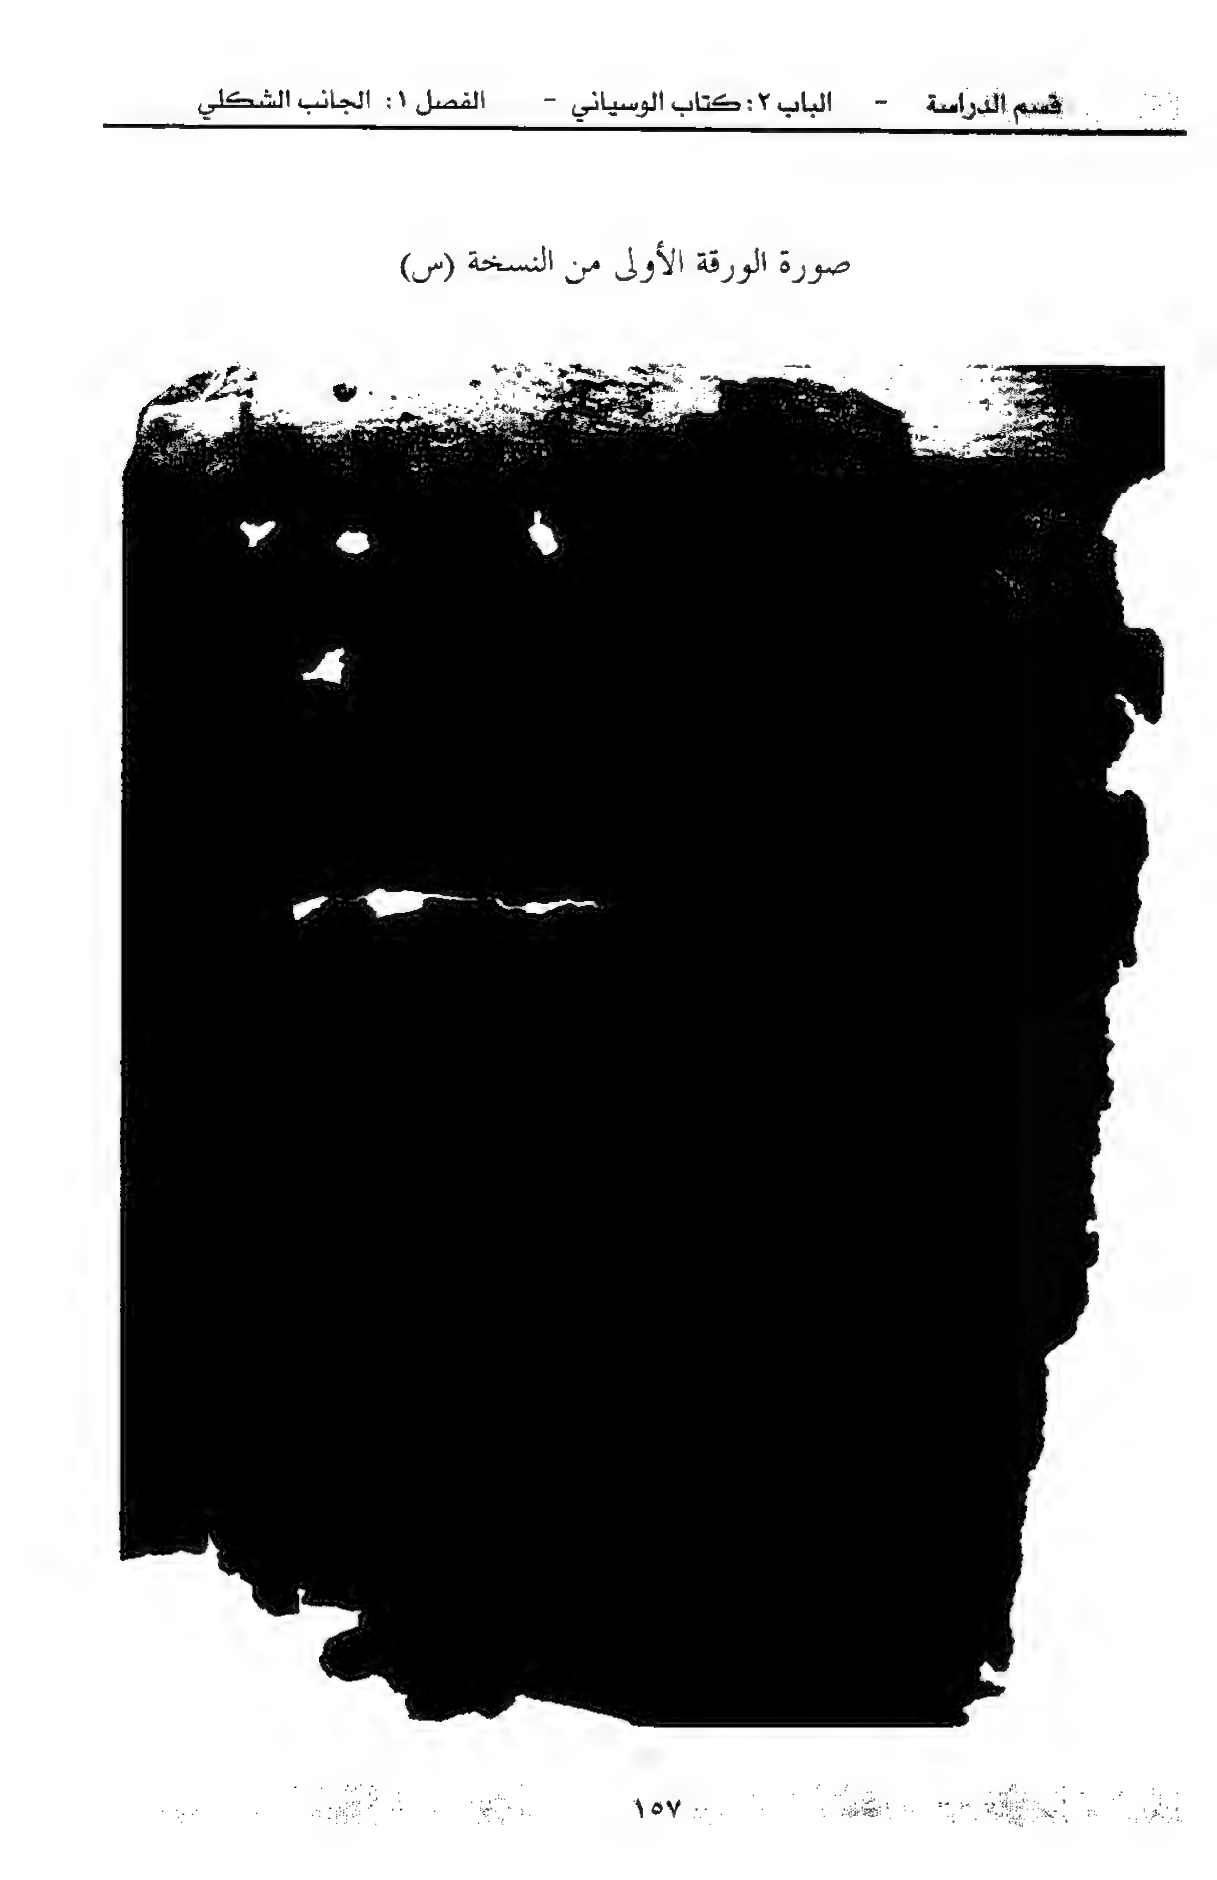 قسم الدراسة - الباب ٢: كتاب الوسياني - الفصل ١: الجانب الشكلي
صورة الورقة الأولى من النسخة (س)
١٥٧